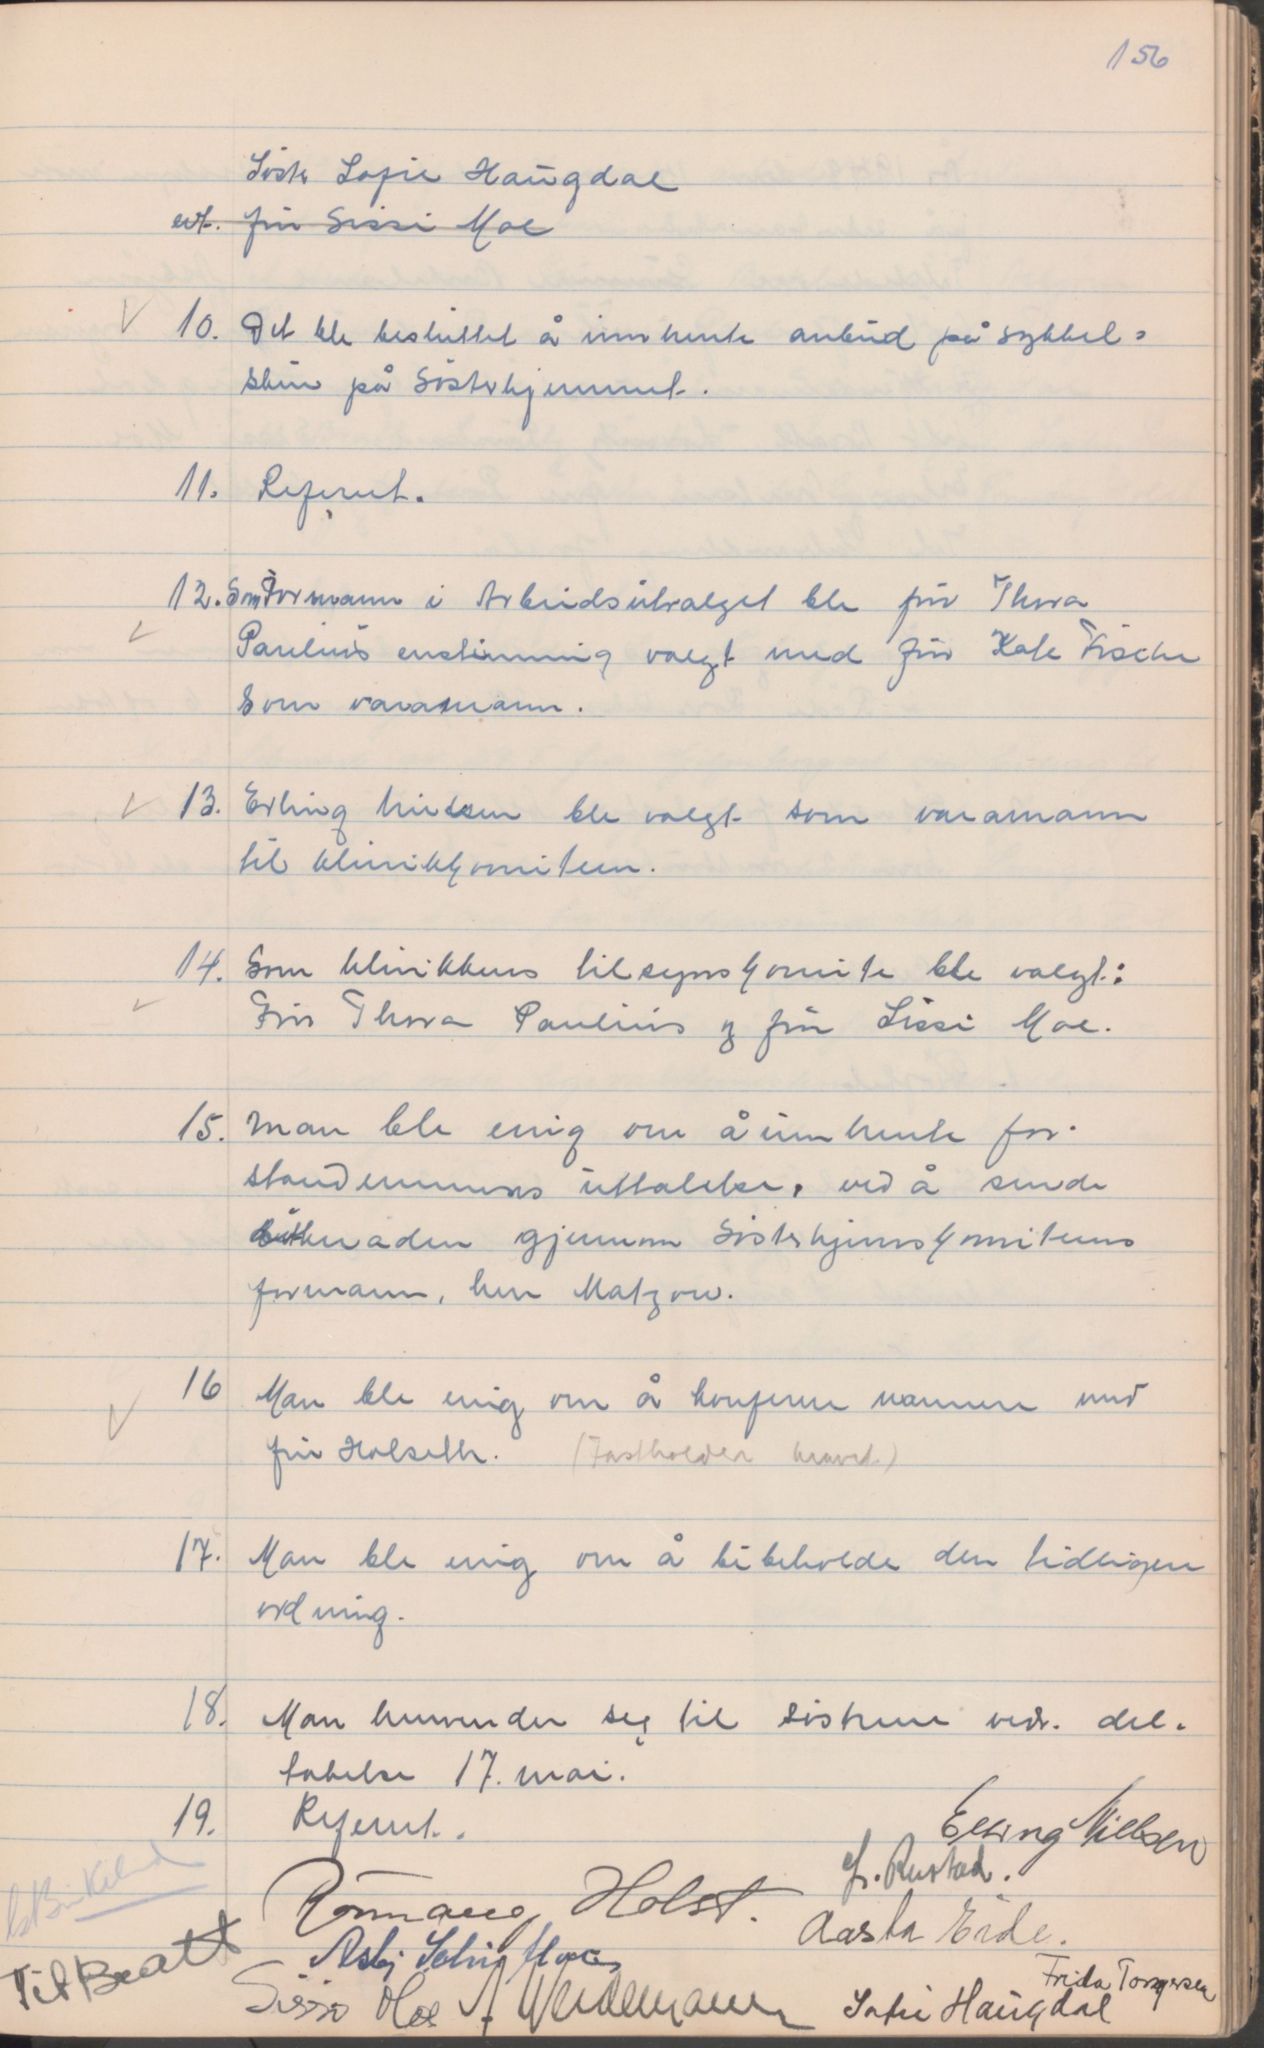 156
Søster Sofie Haugdal
evt. fru Sissi Moe
10. Det ble besluttet å innhente anbud på sykkel=
skur på Søsterhjemmet.
11. Referert.
12. Som Formann i Arbeidsutvalget ble fru Thora
Paulius enstemmig valgt med fru Kate Fische
som varamann.
13. Erling Nielsen ble valgt som varamann
til klinikkomiteen.
14. Som klinikkens tilsynskomite ble valgt:
Fru Thora Paulius og fru Sissi Moe.
15. Man ble enig om å innhente for-
standerinnens uttalelse, ved å sende
søknaden gjennom Søsterhjemskomiteens
formann, herr Matzow.
16 Man ble enig om å konferere nærmere med
fru Holseth. (Fastholder kravet.)
17. Man ble enig om å bibeholde den tidligere
ordning.
18. Man henvender seg til søstrene vedr. del-
takelse 17. mai.
19. Referert.
Erling Nielsen
Fr. Rustad.
Birkeland
Holst.
Aasta Eide.
Tit Bratt
Frida Torgersen
Sissi Moe
Weidemann
Sofie Haugdal